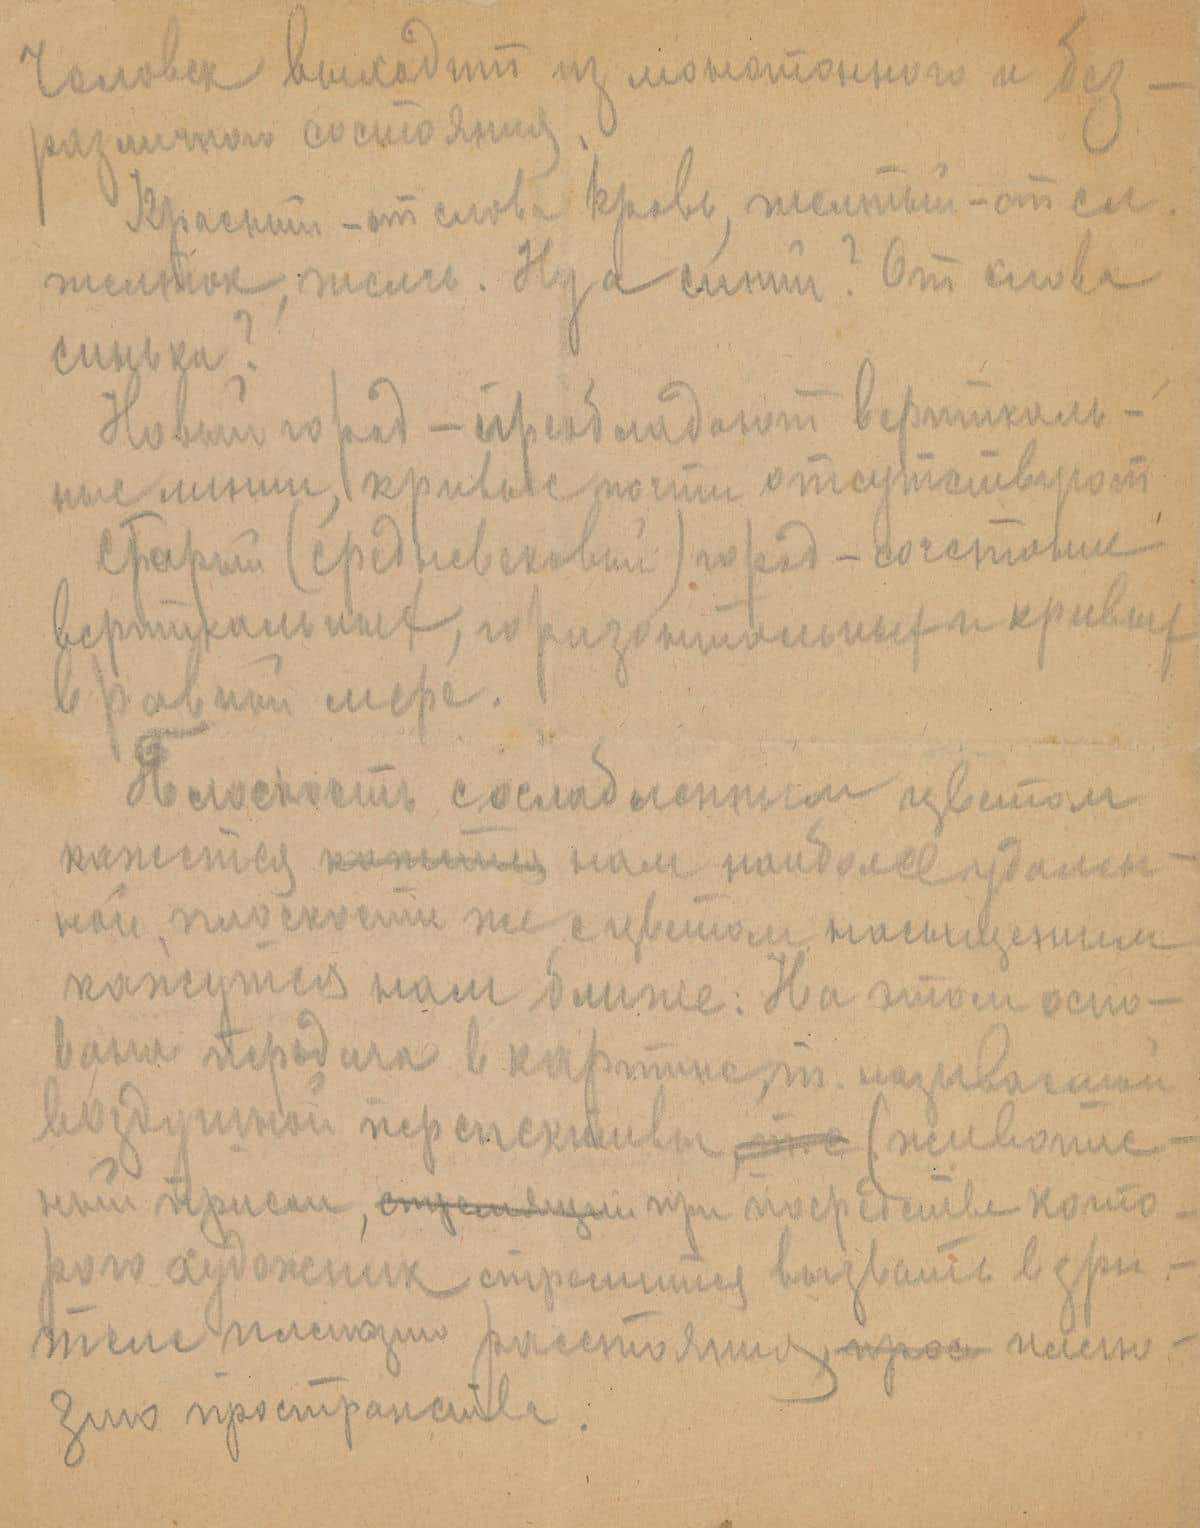 Человек выходит из монотонного и без-
различного состояния.
Красный - от слова кровь, желтый - от сл.
желток, желчь. Ну а синий? От слова
синька?
Новый город - преобладают вертикаль-
ные линии, кривые почти отсутствуют
Старый (средневековый) город - сочетание
вертикальных, горизонтальных и кривых
в равной мере.
Плоскость с ослабленным цветом
кажется кажется нам наиболее удален-
ной, плоскости же с цветом насыщенным
кажутся нам ближе. На этом осно-
вана передача в картине, т. называемой
воздушной перспективы, т.е (живопис-
ный прием, стремящий при посредстве кото-
рого художник стремится вызвать в зри-
теле иллюзию расстояния, прос иллю-
зию пространства.